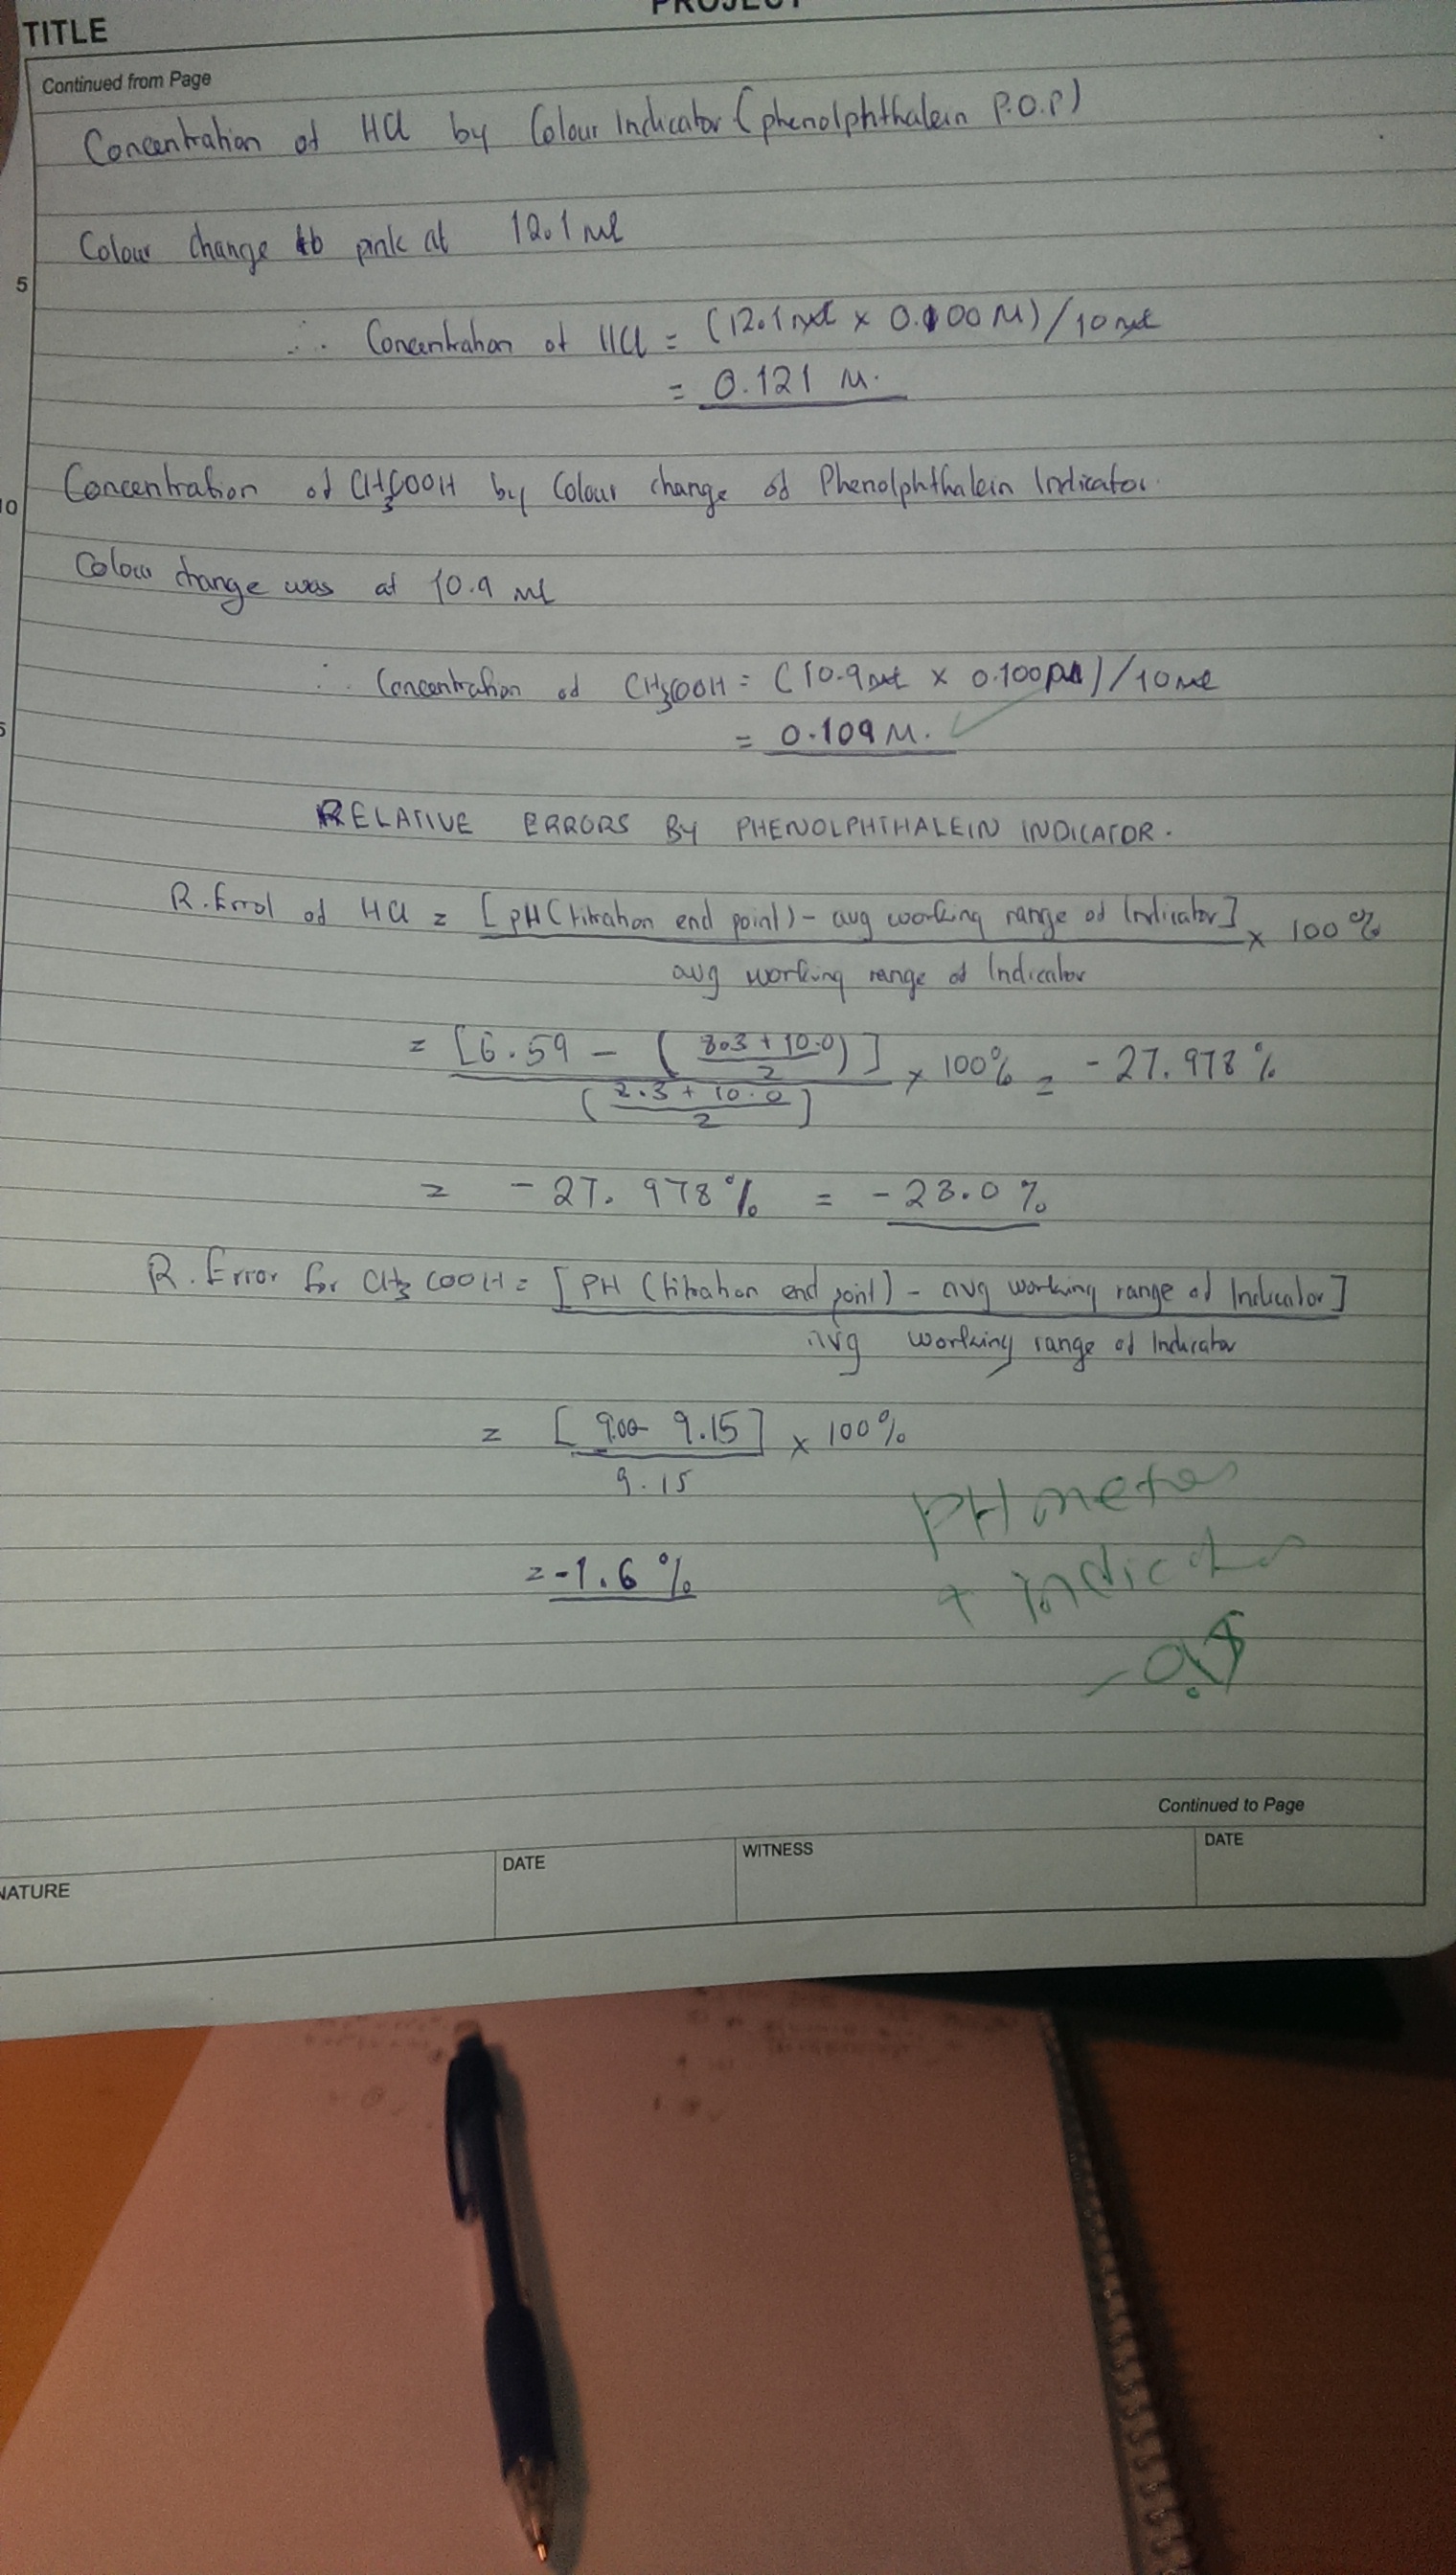 PROJECT
TITLE
Continued from Page
Concentration of HCl by Colour Indicator (phenolphthalein P.O.P)
Colour change to pink at 12.1 ml
5
∴ Concentration of HCl = (12.1 ml × 0.100 M) / 10 ml
= 0.121 M.
Concentration of CH3COOH by Colour change of Phenolphthalein Indicator.
10
Colour change was at 10.9 ml
∴ Concentration of CH3COOH = (10.9 ml × 0.100 M) / 10 ml
5
= 0.109 M. ✓
RELATIVE ERRORS BY PHENOLPHTHALEIN INDICATOR.
R. Error of HCl = [pH (titration end point) - avg working range of Indicator] × 100 %
avg working range of Indicator
= [6.59 - (8.3 + 10.0)] × 100% = - 27.978 %
2
(8.3 + 10.0)
2
= - 27.978 % = - 28.0 %
R. Error for CH3COOH = [PH (titration end point) - avg working range of Indicator]
avg working range of Indicator
= [9.00 - 9.15] × 100%
9.15
PH meter
= -1.6 %
+ indicator
Continued to Page
NATURE
DATE
WITNESS
DATE